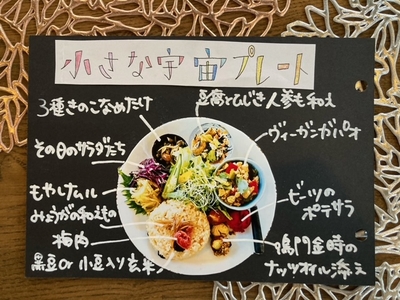 小さな宇宙プレート
3種きのこなめたけ
豆腐とひじき人参も和え
その日のサラダたち
ヴィーガンガパオ
もやしナムル
みょうがの和えもの
ビーツの
ポテサラ
梅肉
黒豆or小豆入り玄米
鳴門金時の
ナッツオイル添え